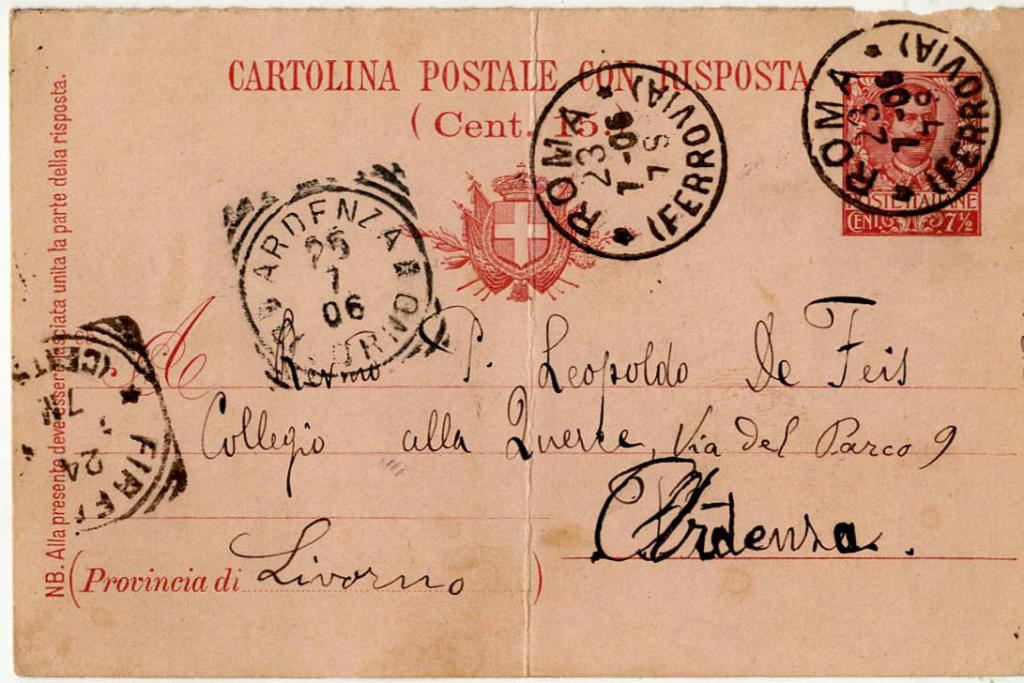 CARTOLINA POSTALE CON RISPOSTA
(Cent. 15.)
ROMA (FERROVIA)
23
1-06
7S
ROMA (FERROVIA)
23
1-06
POSTE ITALIANE
CENT. 7½
ARDENZA LIVORNO
1
06
NB. Alla presente deve essere lasciata unita la parte della risposta.
A
Revmo P. Leopoldo De Feis
Collegio alla Querce, Via del Parco 9
Ardenza.
(Provincia di Livorno)
24